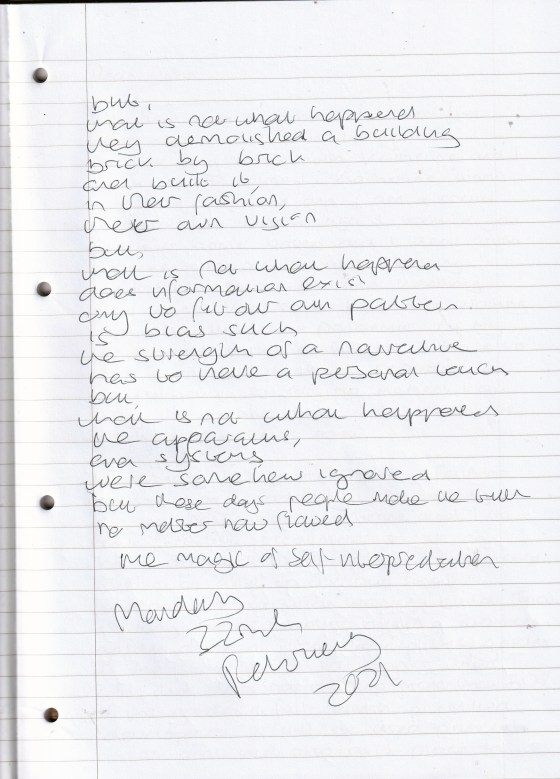 but,
that is not what happened
they demolished a building
brick by brick
and built it,
in their fashion,
their own vision
but,
that is not what happened
does information exist
only to fit our own pattern
is bias such
the strength of a narrative
has to have a personal touch
but
that is not what happened
the apparatus,
and systems
were somehow ignored
but these days people make the truth
no matter how flawed
the magic of self-interpretation
Monday
22nd
February
2021